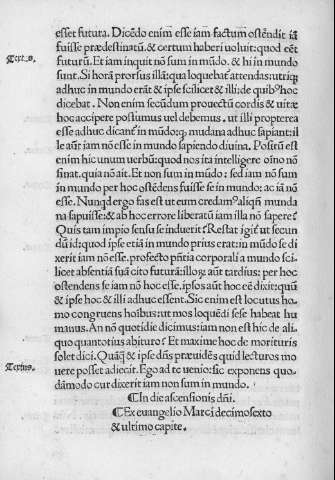 esset futura. Dicēdo enim esse iam factum ostēdit iā
fuisse prædestinatū. & certum haberi uoluit: quod cēt
Text⁹.
futurū. Et iam inquit nō sum in mūdo. & hi in mundo
sunt. Si horā prorsus illā: qua loquebaṫ attendas: utriqꝫ
adhuc in mundo erāt & ipse scilicet & illi: de quib⁹ hoc
dicebat. Non enim secūdum prouectū cordis & uitæ
hoc accipere possumus uel debemus. ut illi propterea
esse adhuc dicant̃ in mūdo: qꝫ mudana adhuc sapiant: il
le aūt iam nō esse in mundo sapiendo diuina. Positū est
enim hic unum uerbū: quod nos ita intelligere oīno nō
sinat. quia nō ait. Et non sum in mūdo: sed iam nō sum
in mundo per hoc ostēdens fuisse se in mundo: ac iā nō
esse. Nunqd ergo fas est ut eum credam⁹ aliqñ munda
na sapuisse: & ab hoc errore liberatū iam illa nō sapere?
Quis tam impio sensu se induerit? Restat igiṫ ut secun
dū id: quod ipse etiā in mundo prius erat: in mūdo se di
xerit iam nō esse. profecto pñtia corporali a mundo sci
licet absentiā suā cito futurā: illoꝝ aūt tardius: per hoc
ostendens se iam nō hoc esse. ipsos aūt hoc cē dixit: quū
& ipse hoc & illi adhuc essent. Sic enim est locutus ho.
mo congruens hoībus: ut mos loquēdi sese habeat hu
manus. An nō quotidie dicimus: iam non est hic de ali.
quo quantotius abituro? Et maxime hoc de morituris
solet dici. Quāqꝫ & ipse dñs præuidēs quid lecturos mo
Textus.
uere posset adiecit. Ego ad te uenio: sic exponens quo.
dāmodo cur dixerit iam non sum in mundo.
¶ In die ascensionis dñi.
¶ Ex euangelio Marci decimosexto
& ultimo capite.